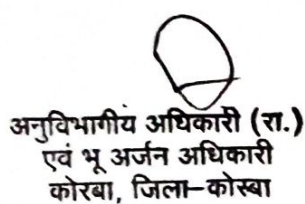 अनुविभागीय अधिकारी (रा.)
एवं भू अर्जन अधिकारी
कोरबा, जिला-कोरबा